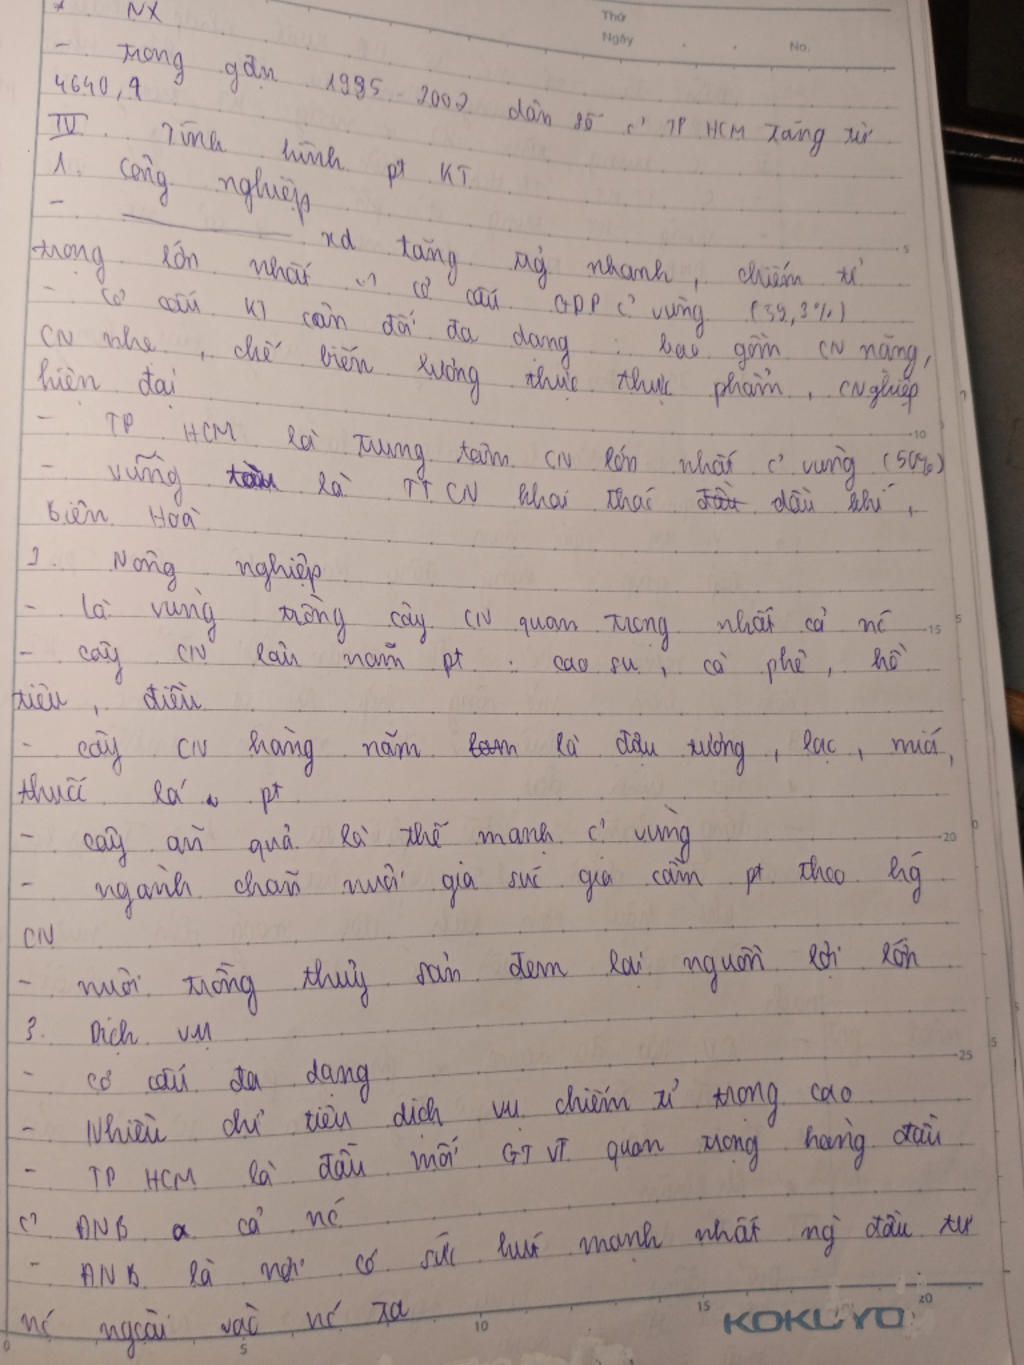 Thứ
Ngày . . No.
* NX
- trong gđn 1995 - 2002 dân số c' TP HCM tăng từ
4640,9
IV. Tình hình pt KT
1. Công nghiệp
- xd tăng trg nhanh, chiếm tỉ
trọng lớn nhất cơ cấu GDP c' vùng (59,3%)
- Cơ cấu KT cân đối đa dạng : bao gồm CN nặng,
CN nhẹ, chế biến lương thực thực phẩm, CNghiệp
hiện đại
- TP HCM là trung tâm CN lớn nhất c' vùng (50%)
- vũng tàu là TTCN khai thác dầu khí,
Biên Hoà
2. Nông nghiệp
- là vùng trồng cây CN quan trọng nhất cả nc
- cây CN lâu năm pt : cao su, cà phê, hồ
tiêu, điều
- cây CN hàng năm là đậu tương, lạc, mía,
thuốc lá pt
- cây ăn quả là thế mạnh c' vùng
- ngành chăn nuôi gia súc gia cầm pt theo hg
CN
- nuôi trồng thuỷ sản đem lại nguồn lợi lớn
3. Dịch vụ
- cơ cấu đa dạng
- Nhiều chỉ tiêu dịch vụ chiếm tỉ trọng cao
- TP HCM là đầu mối GTVT quan trọng hàng đầu
c' ĐNB cả nc
- ĐNB là nơi có sức hút mạnh nhất ng đầu tư
nc ngoài vào nc ta
KOKUYO